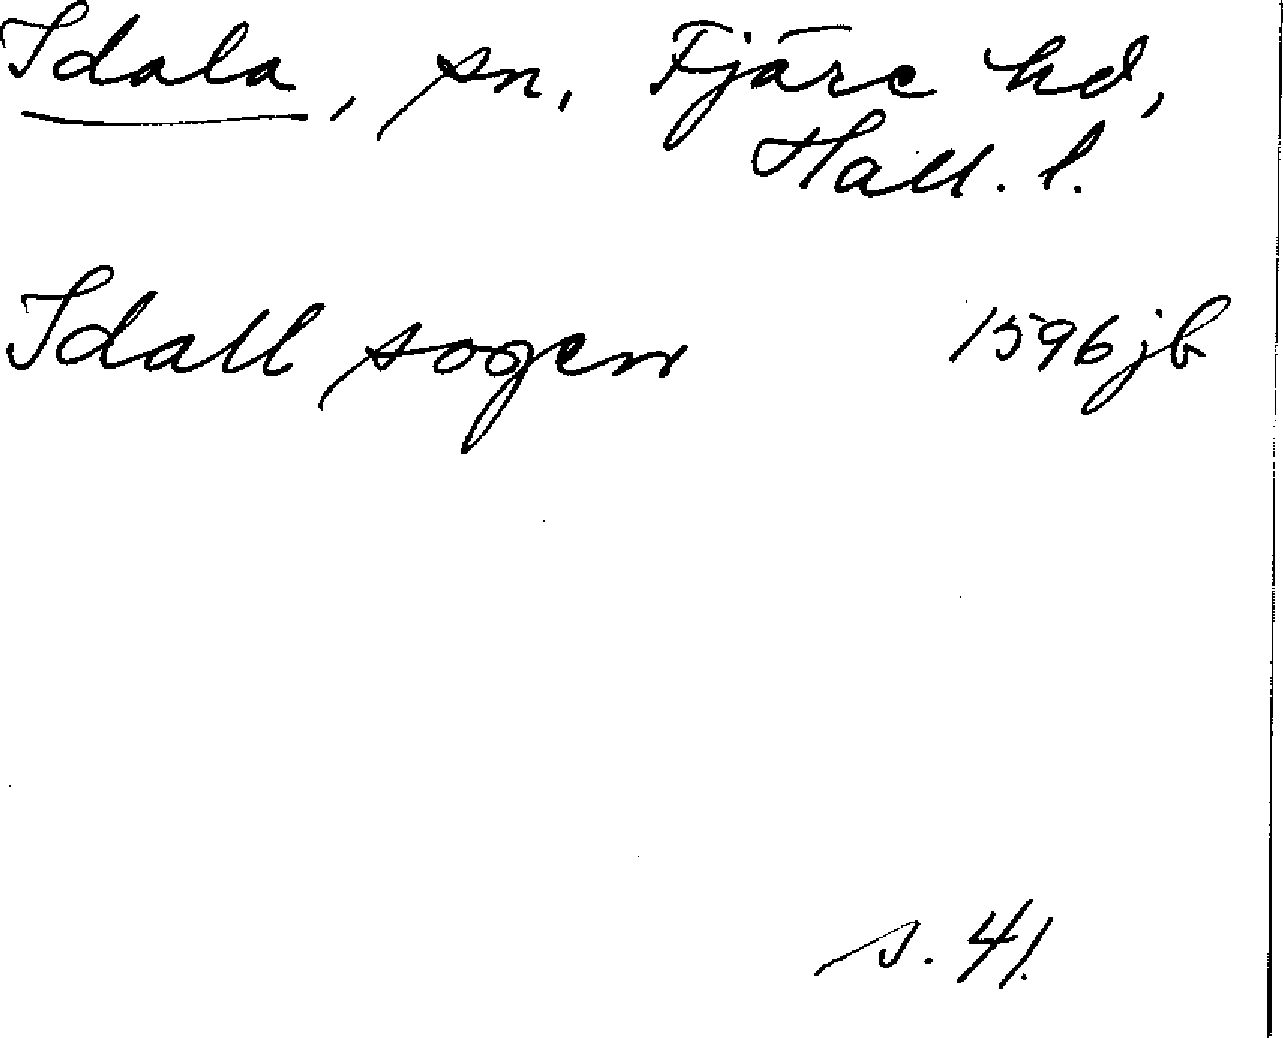 Idala, sn, Fjäre hd,
Hall. l.
Idall sogen 1596 jb
s. 41.